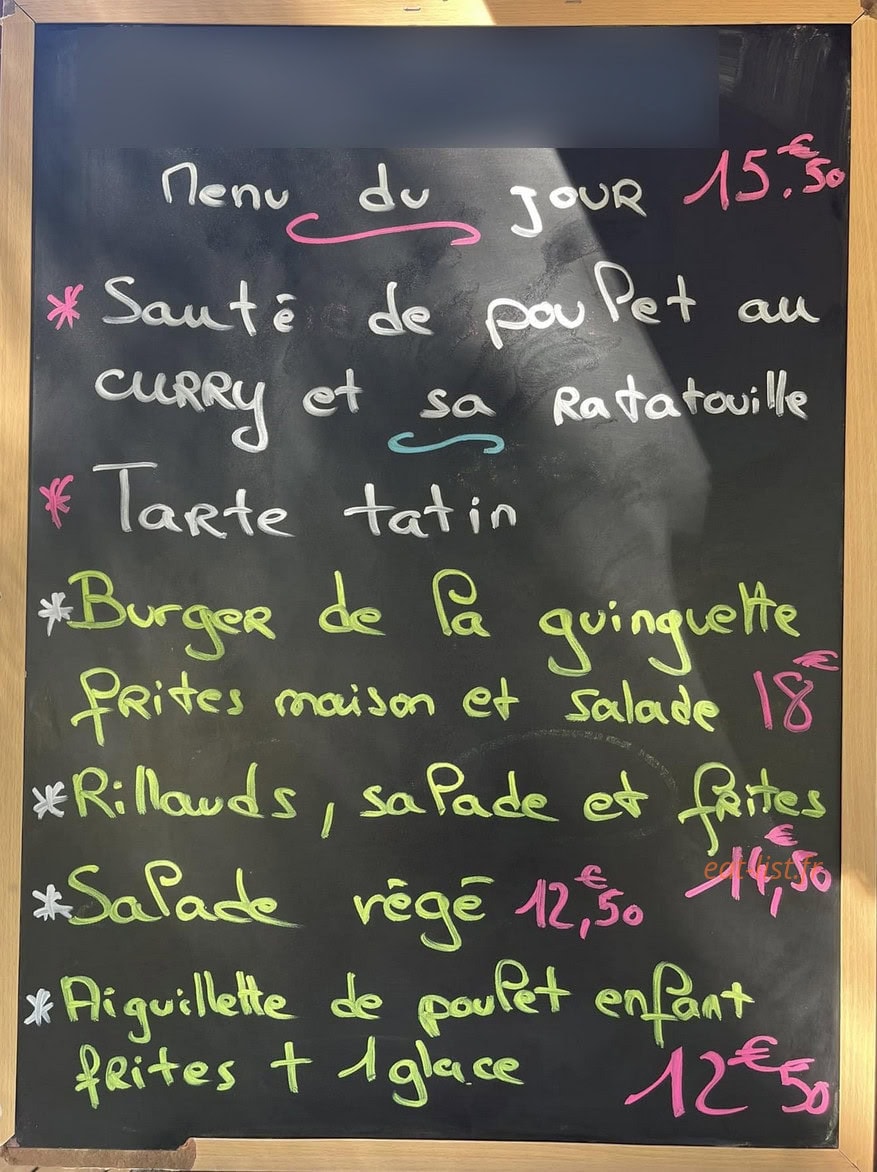 Menu du jour 15.€50
* Sauté de poulet au
curry et sa Ratatouille
* Tarte tatin
* Burger de la guinguette
frites maison et salade 18€
* Rillauds, salade et frites
eat-list.fr 14,€50
* Salade végé 12,€50
* Aiguillette de poulet enfant
frites + 1 glace 12€50